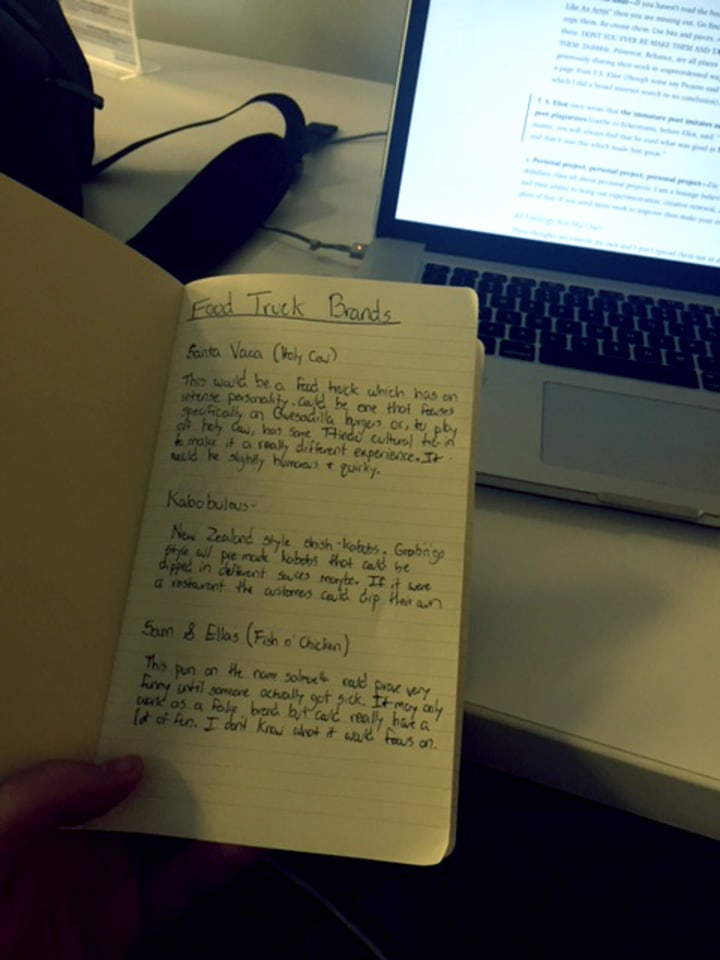 Food Truck Brands
Santa Vaca (Holy Cow)
This would be a food truck which has an
intense personality. Could be one that focuses
specifically on Quesadilla burgers or, to play
off holy cow, has some Hindu cultural tie-in
to make it a really different experience. It
would be slightly humorous & quirky.
Kabobulous-
New Zealand style shish-kabobs. Grab n' go
style w/ pre-made kabobs that could be
dipped in different sauces maybe. If it were
a restaurant the customers could dip their own
Sam & Ella's (Fish n' Chicken)
This pun on the name salmonella could prove very
funny until someone actually got sick. It may only
work as a fake brand but could really have a
lot of fun. I don't know what it would focus on.
Like An Artist" then you are missing out. Go
copy them. Re-create them. Use bits and pieces.
them. DONT YOU EVER RE-MAKE THEM AND
THEM. Dribbble, Pinterest, Behance, are all places
generously sharing their work in unprecedented
a page from T.S. Eliot (though some say Picasso said
which I did a broad internet search to no conclusion)
T. S. Eliot once wrote that the immature poet imitates
poet plagiarizes
matter, you will always find that he used what was good in
and that it was this which made him great."
Personal project, personal project, personal project
All Feelings Are My Own